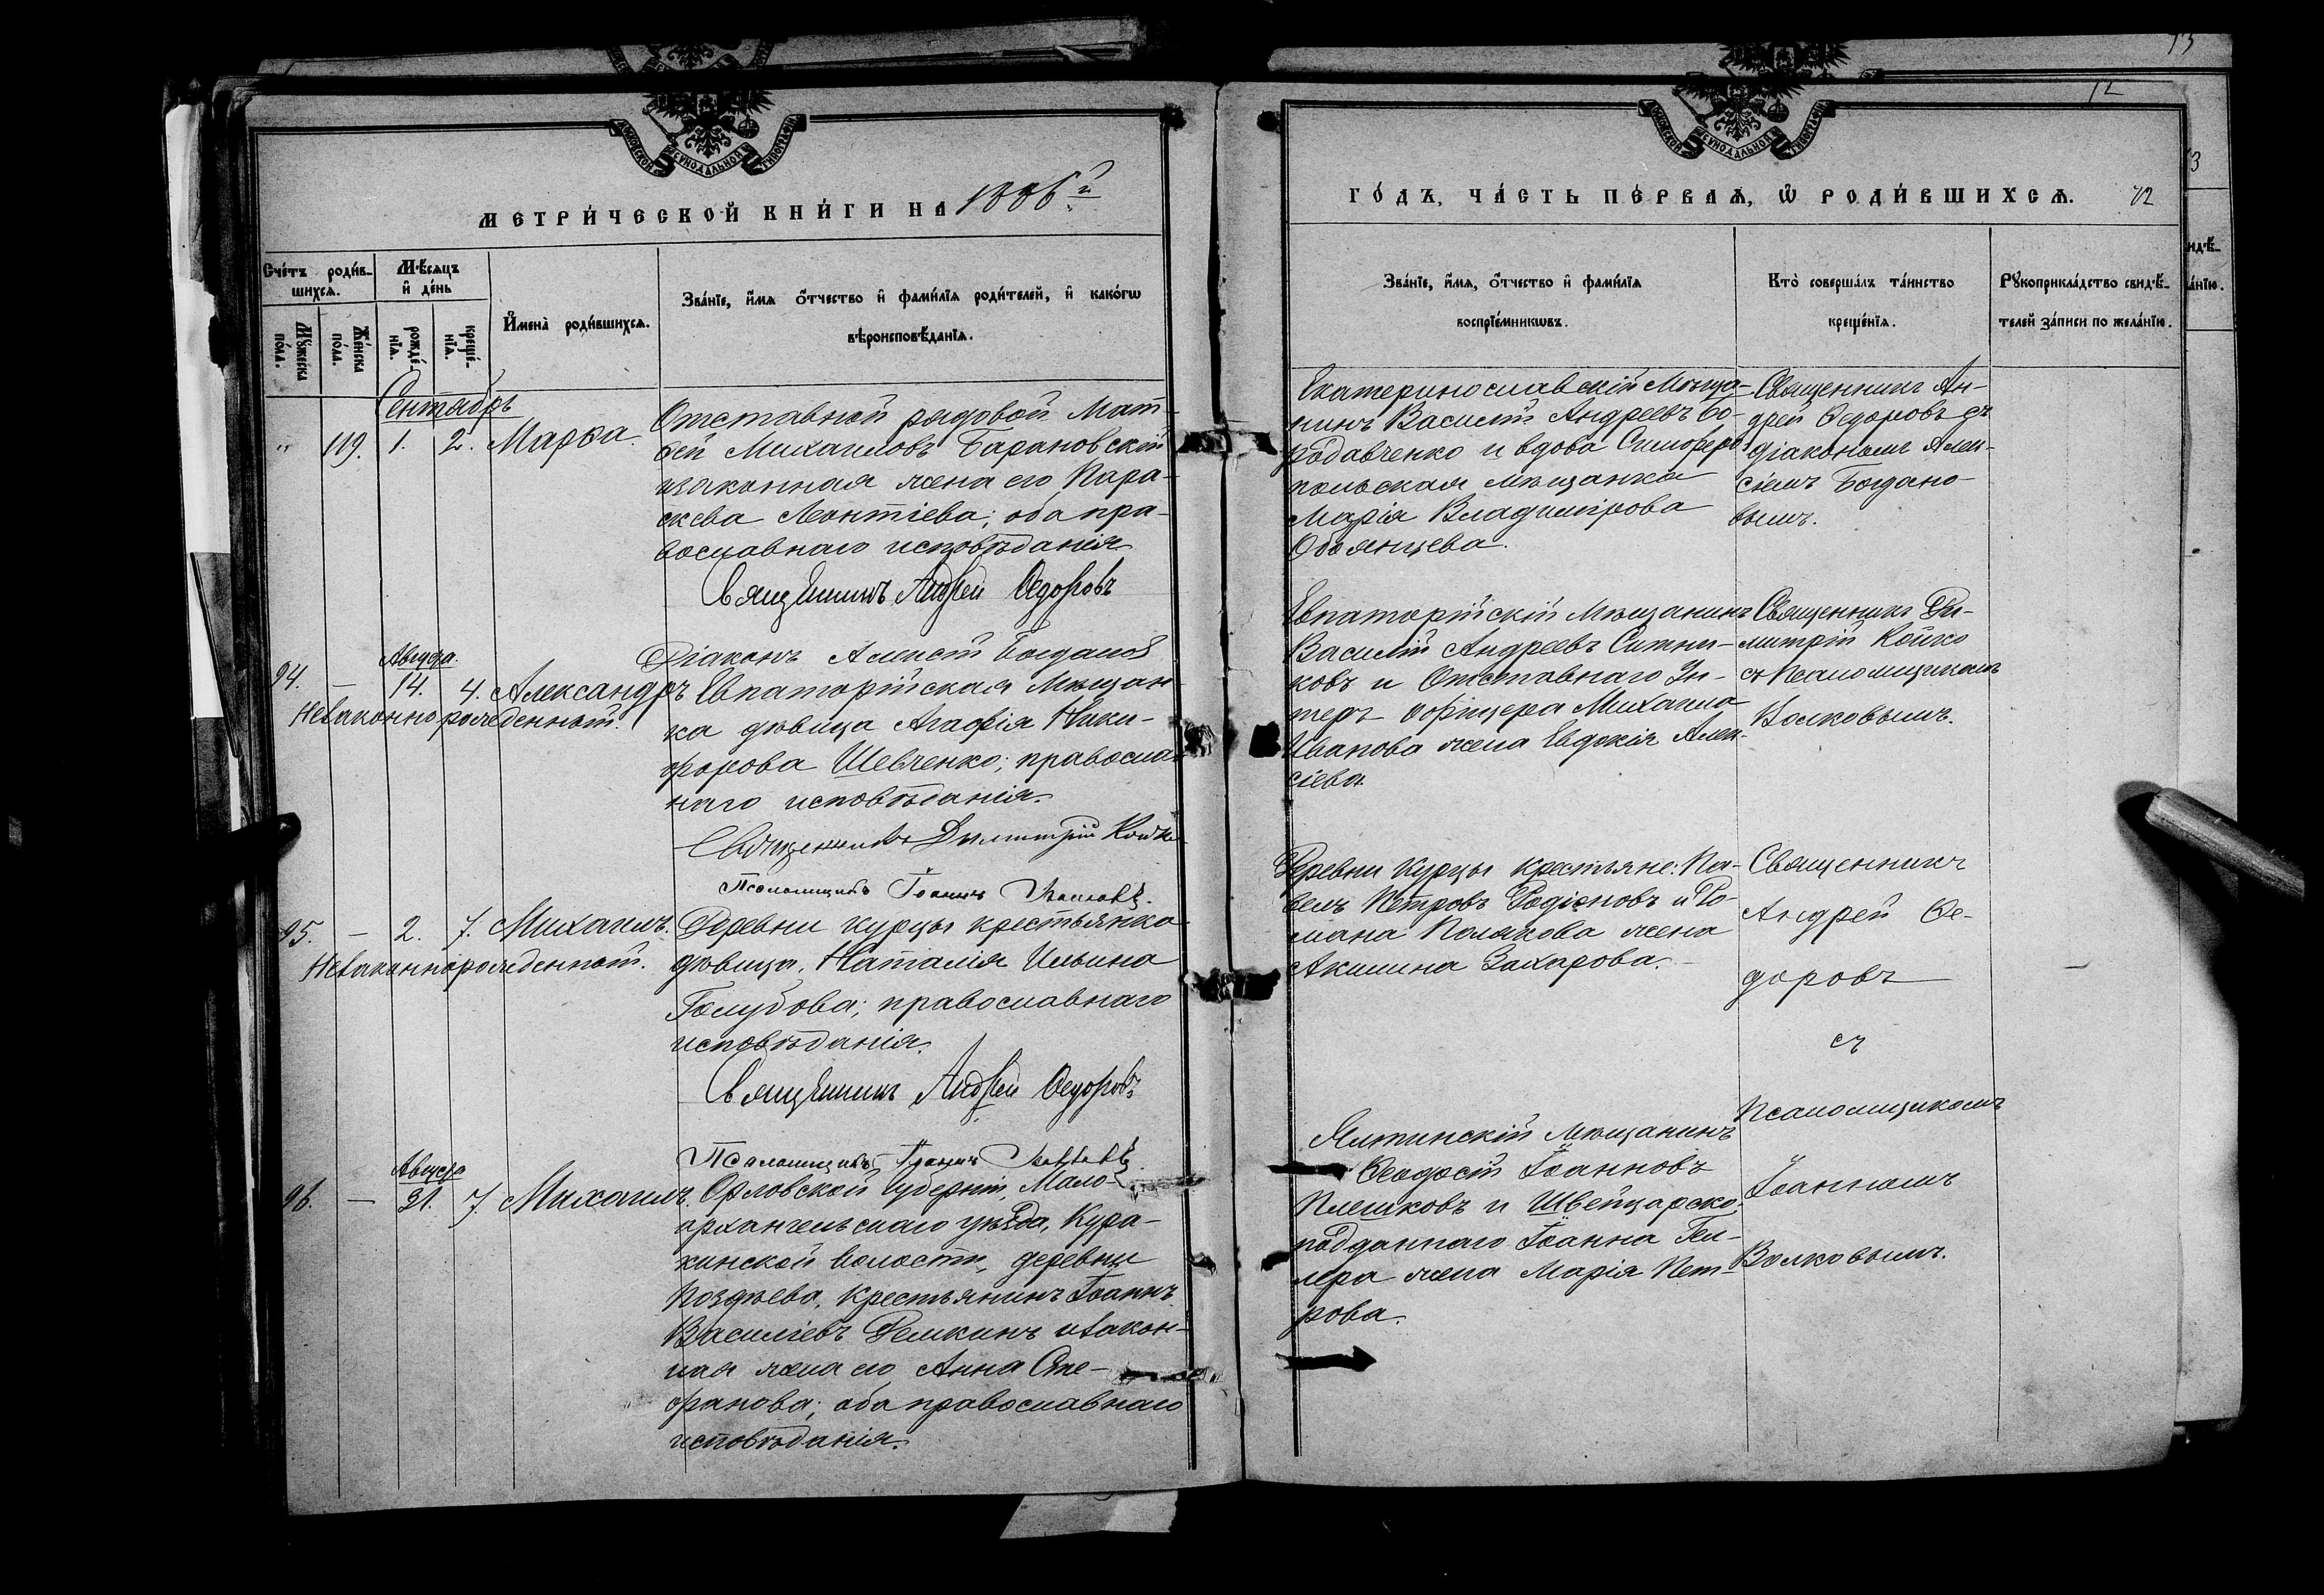 МЕТРИ́ЧЕСКОЙ КНИ́ГИ НА 1886й
Сче́тъ роди́в-
шихсѧ.
Мѣ́сѧцъ
и҆ де́нь
И҆мена̀ роди́вшихсѧ.
Зва́нїе, и҆́мѧ ѻ҆́тчество и҆ фами́лїѧ роди́телей, и҆ како́гѡ
вѣроисповѣ́данїѧ.
Мꙋ́жеска
по́ла.
Же́нска
по́ла.
рожде́-
нїѧ.
креще́-
нїѧ.
Сентябрь
" 119. 1. 2. Марѳа.
Отставной рядовой Мат-
вей Михаиловъ Барановскій
изаконная жена его Пара-
скева Леонтіева; оба пра-
вославнаго исповѣданія
Священникъ Андрей Ѳедоровъ
Діаконъ Алексій Богданов
Августа.
94. — 14. 4. Александръ
Незаконнорожденный.
Евпаторійская Мѣщан-
ка дѣвица Агафія Ники-
форова Шевченко; правосла-
наго исповѣданія.
Священникъ Димитрій Койко
Псаломщикъ Іоаннъ Волковъ.
95. — 2. 7. Михаилъ.
Незаконнорожденный.
Деревни Курцы крестьянка
дѣвица, Наталія Ильина
Голубова; православнаго
исповѣданія.
Священникъ Андрей Ѳедоровъ
Псаломщикъ Іоаннъ Волковъ.
Августа
96. — 31. 7. Михаилъ.
Орловской губерніи, Мало-
архангельскаго уѣзда, Кура-
кинской волости, деревни
Поздѣева, крестьянинъ Іоаннъ
Василіевъ Демкинъ изакон-
ная жена его Анна Сте-
фанова; оба православнаго
исповѣданія.
ГО́ДЪ, ЧА́СТЬ ПЕ́РВАѦ, Ѡ҆ РОДИ́ВШИХСѦ. 72
Зва́нїе, и҆́мѧ, ѻ҆́тчество и҆ фами́лїѧ
воспрїе́мникѡвъ.
Кто̀ соверша́лъ та́инство
креще́нїѧ.
Рꙋкоприкла́дство свидѣ́-
телей за́писи по жела́нїю.
Екатеринославскій Мѣща-
нинъ Василій Андреевъ Бо-
родавченко и вдова Симферо-
польская мѣщанка
Марія Владимірова
Обоянцева.
Священникъ Ан-
дрей Ѳедоровъ съ
діакономъ Алек-
сіемъ Богдано-
вымъ.
Евпаторійскій Мѣщанинъ
Василій Андреевъ Ситни-
ковъ и Отставнаго Ун-
теръ офицера Михаила
Иванова жена Евдокія Алек-
сіева
Священникъ Ди-
митрій Койко
съ Псаломщикомъ
Волковымъ.
Деревни Курцы крестьяне: Па-
велъ Петровъ Родіоновъ и Ро-
мана Полякова жена
Акилина Захарова.
Священникъ
Андрей Ѳе-
доровъ
съ
Псаломщикомъ
Іоанномъ
Волковымъ.
Ялтинскій мѣщанинъ
Ѳеодосій Іоанновъ
Плешковъ и Швейцарско-
подданнаго Іоанна Гей-
лера жена Марія Пет-
рова.